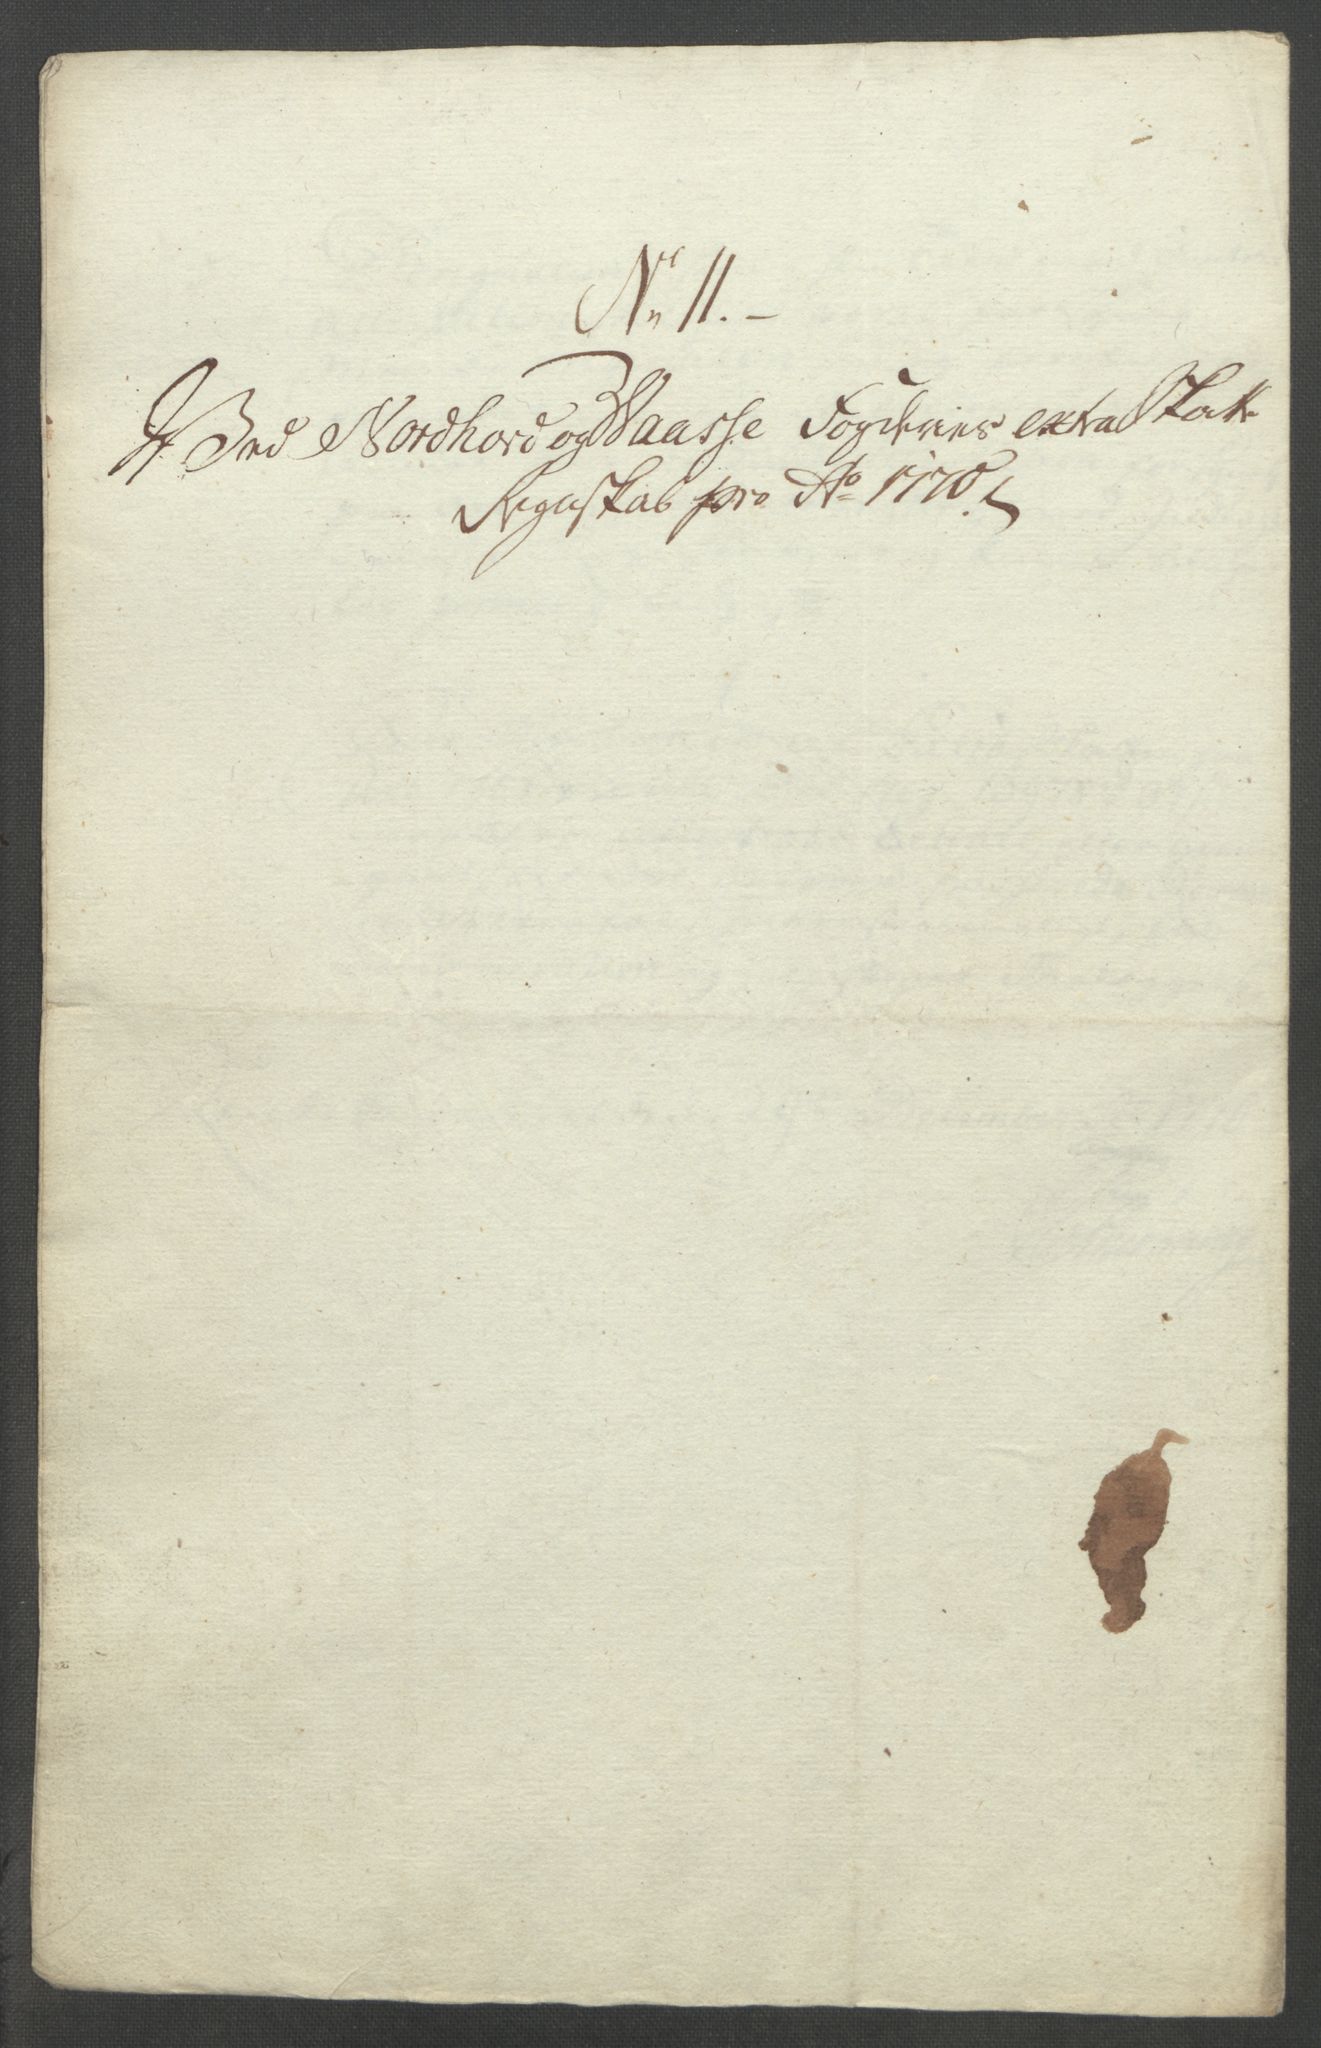 No 11. -
Ved Nordhord og Waasse Fogderies extra Skatte
Regnskab pro Ao 1770.